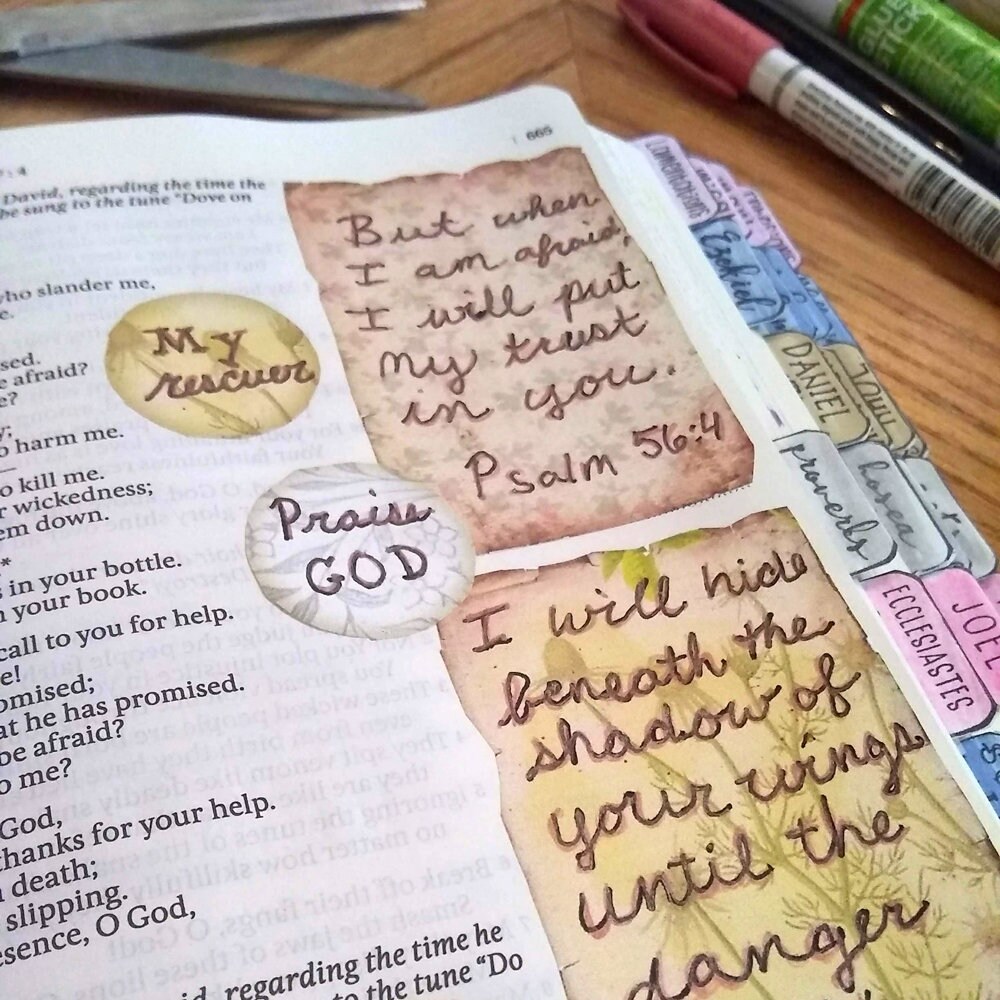 :4
665
David, regarding the time the
be sung to the tune "Dove on
who slander me,
sed.
afraid?
harm me.
o kill me.
wickedness;
em down.
*
in your bottle.
your book.
call to you for help.
e!
omised;
at he has promised.
be afraid?
o me?
God,
thanks for your help.
death;
slipping.
sence, O God,
regarding the time he
to the tune "Do
My
rescuer
Praise
GOD
But when
I am afraid,
I will put
my trust
in you.
Psalm 56:4
I will hide
beneath the
shadow of
your wings
until the
danger
Ezekiel
DANIEL
proverbs
hosea
ECCLESIASTES
JOEL
GLUE
STICK